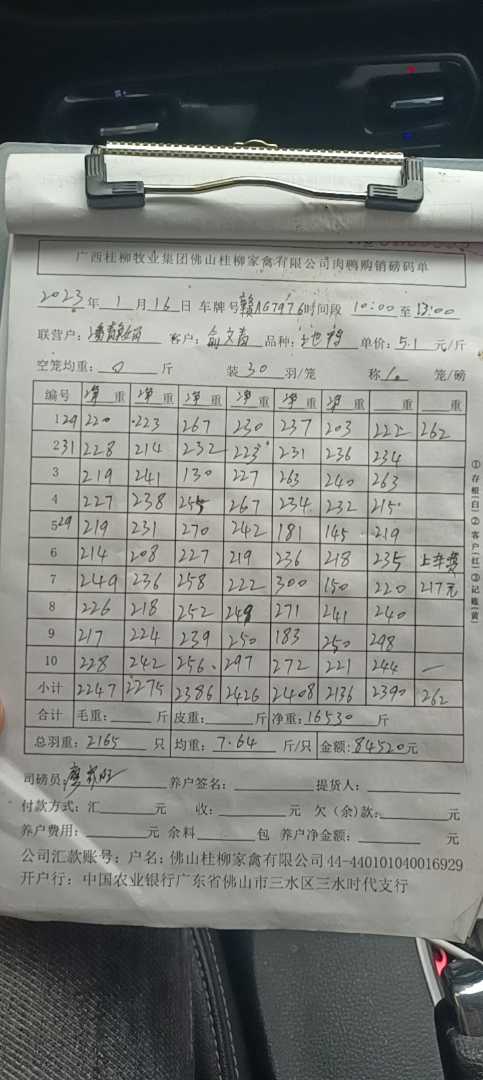 广西桂柳牧业集团佛山桂柳家禽有限公司肉鸭购销磅码单
2023年1月16日 车牌号赣AG7976时间段 10:00至13:00
联营户: 客户:俞文高 品种: 单价:5.1元/斤
空笼均重:0斤 装30羽/笼 称1笼/磅
编号 净重 净重 净重 净重 净重 净重 重 重
1 29 220 223 267 230 237 203 222 262
2 31 228 214 232 223 231 236 234
3 219 241 130 227 263 240 263
4 227 238 255 267 234 232 215
5 29 219 231 270 242 181 145 219
6 214 208 227 219 236 218 235 上车费
7 249 236 258 222 300 150 220 217元
8 226 218 252 249 271 241 240
9 217 224 239 250 183 250 298
10 228 242 256 297 272 221 244 —
小计 2247 2275 2386 2426 2408 2136 2390 262
合计 毛重: 斤 皮重: 斤 净重:16530斤
总羽重:2165只 均重:7.64斤/只 金额:84520元
司磅员: 养户签名: 提货人:
付款方式:汇 收: 元 欠(余)款: 元
养户费用: 元 余料 包 养户净金额: 元
公司汇款账号:户名:佛山桂柳家禽有限公司44-440101040016929
开户行:中国农业银行广东省佛山市三水区三水时代支行
①存根(白)②客户(红)③记账(黄)